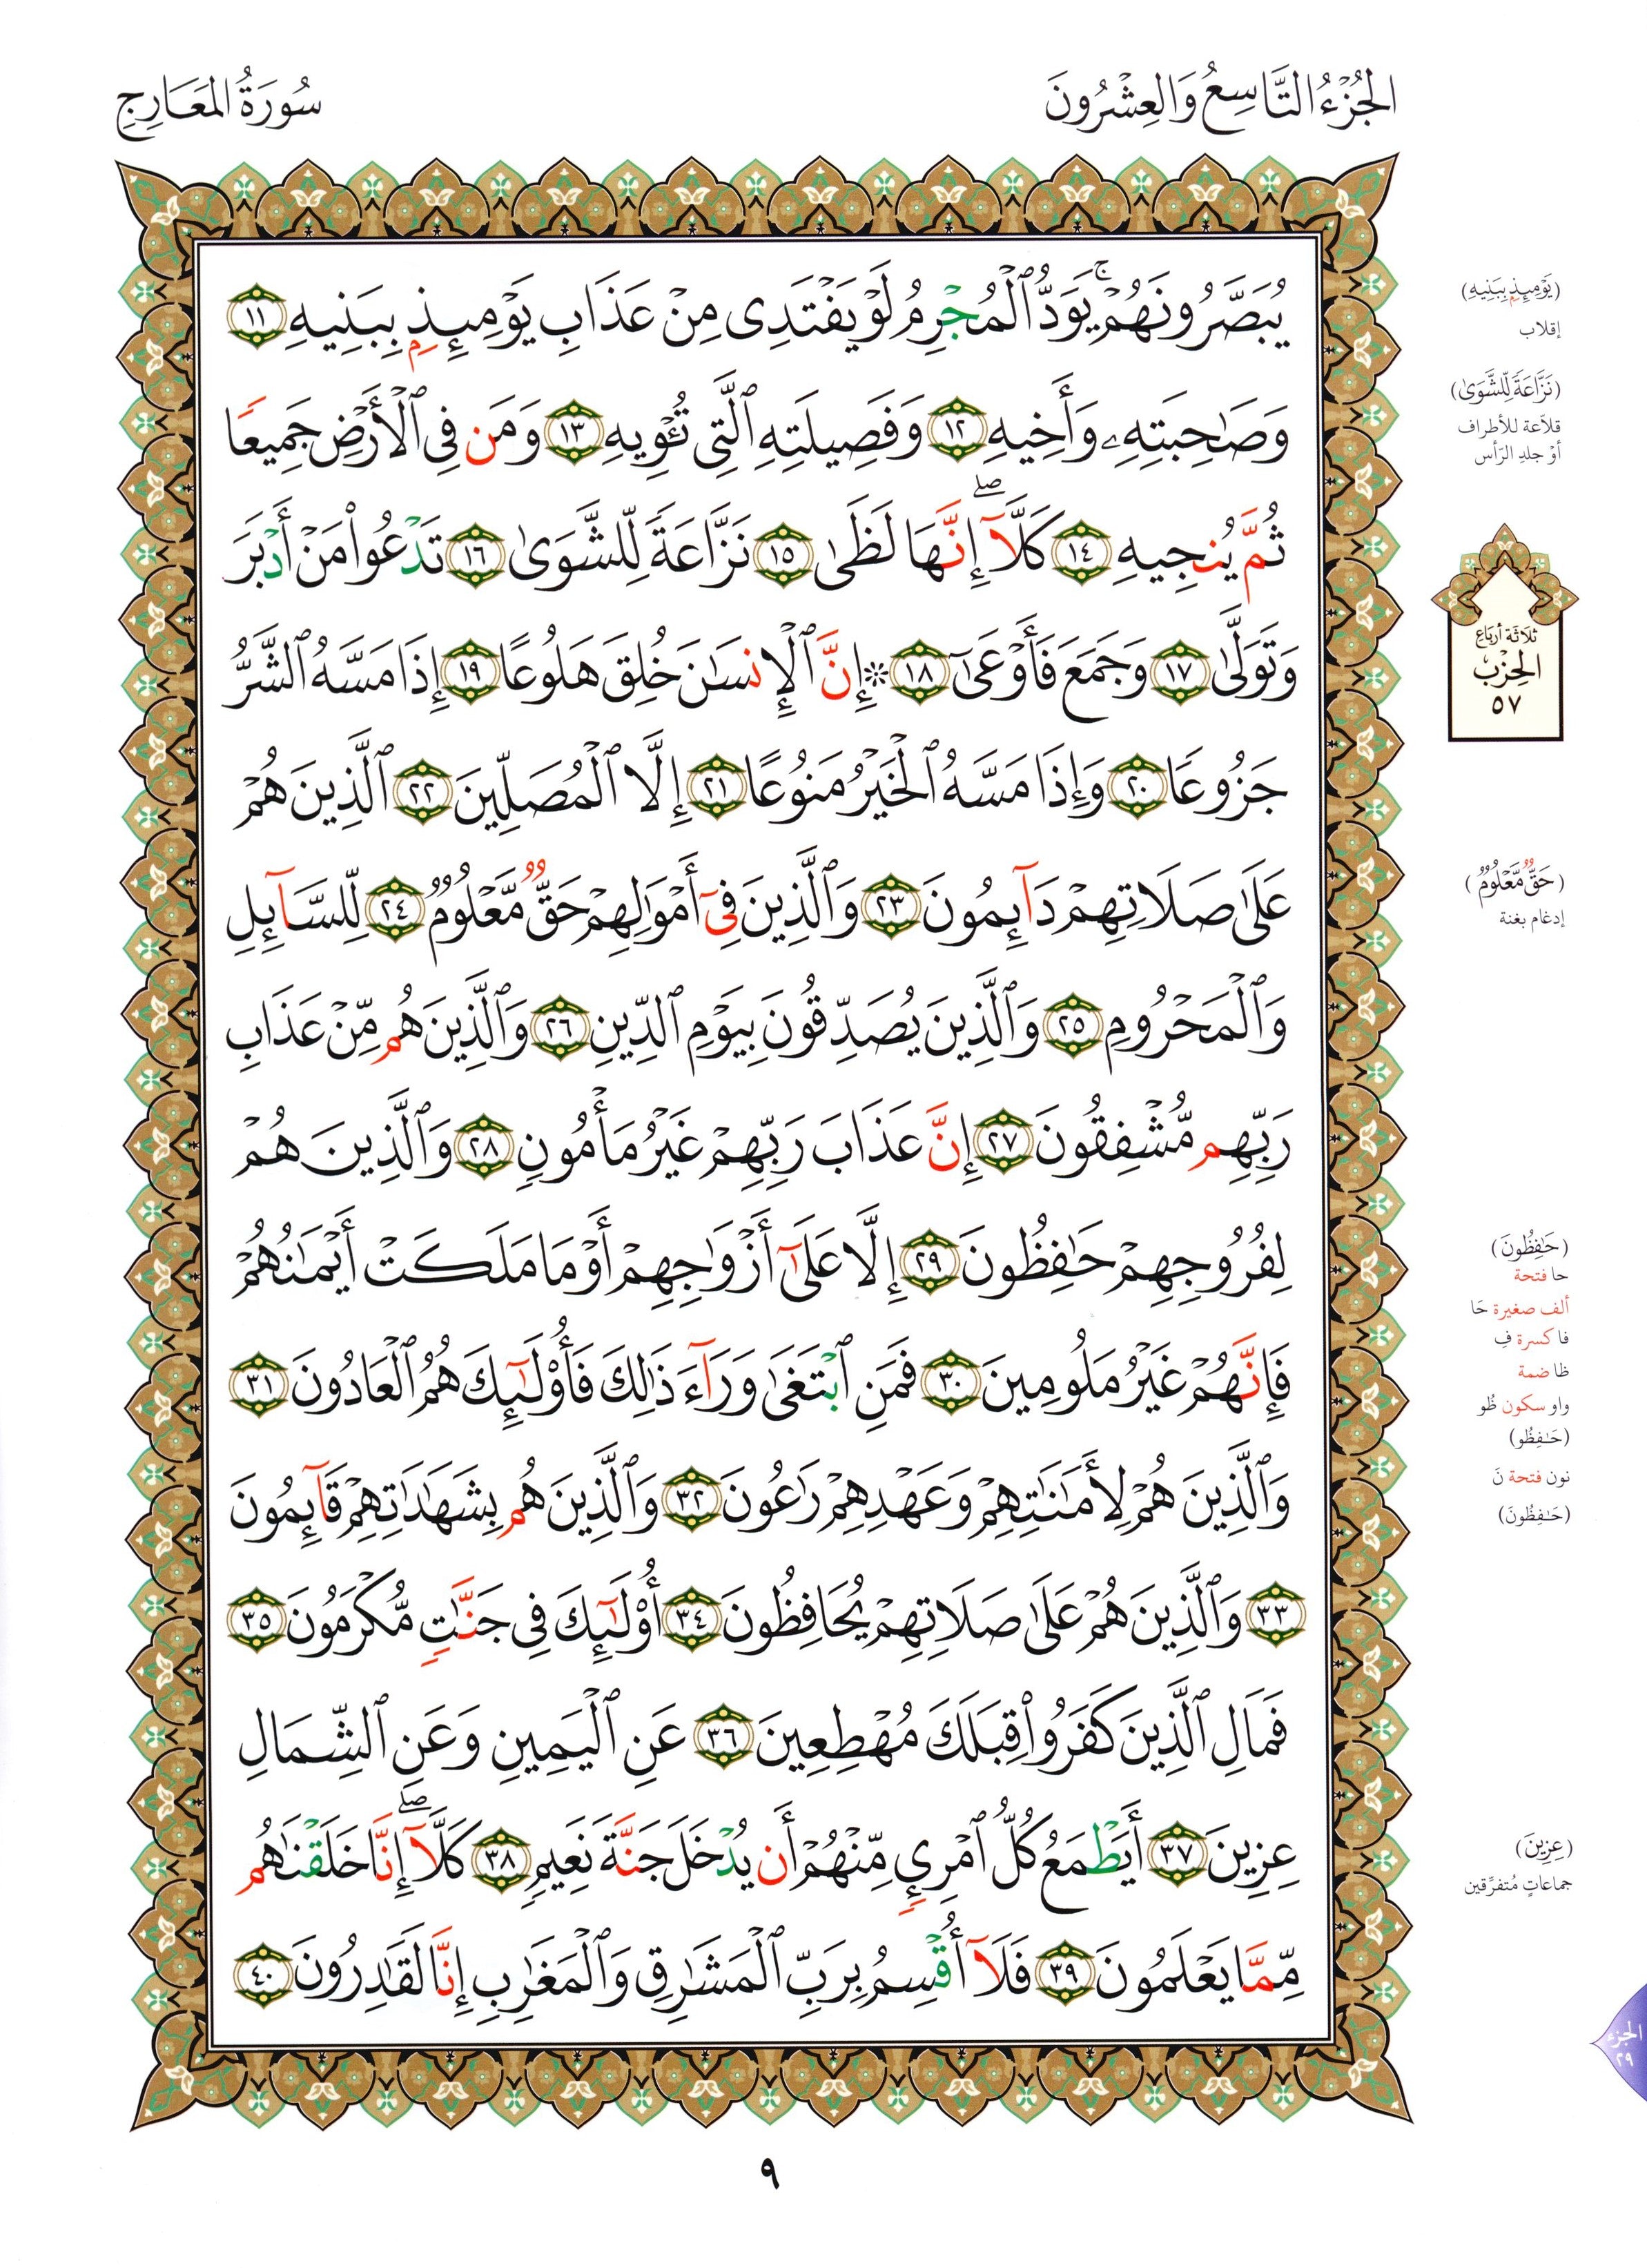 الجُزْءُ التَّاسِعُ وَالعِشْرُونَ
سُورَةُ المَعَارِجِ
يُبَصَّرُونَهُمْ ۚ يَوَدُّ ٱلْمُجْرِمُ لَوْ يَفْتَدِى مِنْ عَذَابِ يَوْمِئِذِۭ بِبَنِيهِ ١١
وَصَٰحِبَتِهِۦ وَأَخِيهِ ١٢ وَفَصِيلَتِهِ ٱلَّتِى تُـْٔوِيهِ ١٣ وَمَن فِى ٱلْأَرْضِ جَمِيعًا
ثُمَّ يُنجِيهِ ١٤ كَلَّآ ۖ إِنَّهَا لَظَىٰ ١٥ نَزَّاعَةً لِّلشَّوَىٰ ١٦ تَدْعُوا۟ مَنْ أَدْبَرَ
وَتَوَلَّىٰ ١٧ وَجَمَعَ فَأَوْعَىٰٓ ١٨ ۞ إِنَّ ٱلْإِنسَٰنَ خُلِقَ هَلُوعًا ١٩ إِذَا مَسَّهُ ٱلشَّرُّ
جَزُوعًا ٢٠ وَإِذَا مَسَّهُ ٱلْخَيْرُ مَنُوعًا ٢١ إِلَّا ٱلْمُصَلِّينَ ٢٢ ٱلَّذِينَ هُمْ
عَلَىٰ صَلَاتِهِمْ دَآئِمُونَ ٢٣ وَٱلَّذِينَ فِىٓ أَمْوَٰلِهِمْ حَقٌّ مَّعْلُومٌ ٢٤ لِّلسَّآئِلِ
وَٱلْمَحْرُومِ ٢٥ وَٱلَّذِينَ يُصَدِّقُونَ بِيَوْمِ ٱلدِّينِ ٢٦ وَٱلَّذِينَ هُم مِّنْ عَذَابِ
رَبِّهِم مُّشْفِقُونَ ٢٧ إِنَّ عَذَابَ رَبِّهِمْ غَيْرُ مَأْمُونٍ ٢٨ وَٱلَّذِينَ هُمْ
لِفُرُوجِهِمْ حَٰفِظُونَ ٢٩ إِلَّا عَلَىٰٓ أَزْوَٰجِهِمْ أَوْ مَا مَلَكَتْ أَيْمَٰنُهُمْ
فَإِنَّهُمْ غَيْرُ مَلُومِينَ ٣٠ فَمَنِ ٱبْتَغَىٰ وَرَآءَ ذَٰلِكَ فَأُو۟لَٰٓئِكَ هُمُ ٱلْعَادُونَ ٣١
وَٱلَّذِينَ هُمْ لِأَمَٰنَٰتِهِمْ وَعَهْدِهِمْ رَٰعُونَ ٣٢ وَٱلَّذِينَ هُم بِشَهَٰدَٰتِهِمْ قَآئِمُونَ
٣٣ وَٱلَّذِينَ هُمْ عَلَىٰ صَلَاتِهِمْ يُحَافِظُونَ ٣٤ أُو۟لَٰٓئِكَ فِى جَنَّٰتٍ مُّكْرَمُونَ ٣٥
فَمَالِ ٱلَّذِينَ كَفَرُوا۟ قِبَلَكَ مُهْطِعِينَ ٣٦ عَنِ ٱلْيَمِينِ وَعَنِ ٱلشِّمَالِ
عِزِينَ ٣٧ أَيَطْمَعُ كُلُّ ٱمْرِئٍ مِّنْهُمْ أَن يُدْخَلَ جَنَّةَ نَعِيمٍ ٣٨ كَلَّآ ۖ إِنَّا خَلَقْنَٰهُم
مِّمَّا يَعْلَمُونَ ٣٩ فَلَآ أُقْسِمُ بِرَبِّ ٱلْمَشَٰرِقِ وَٱلْمَغَٰرِبِ إِنَّا لَقَٰدِرُونَ ٤٠
(يَوْمِئِذِۭ بِبَنِيهِ)
إقلاب
(نَزَّاعَةً لِّلشَّوَىٰ)
قلاّعة للأطراف
أوْ جلدِ الرّأس
ثلاثة أرباع
الحِزْب
٥٧
(حَقٌّ مَّعْلُومٌ)
إدغام بغنة
(حَٰفِظُونَ)
حا فتحة
ألف صغيرة حَا
فا كسرة فِ
ظا ضمة
واو سكون ظُو
(حَٰفِظُو)
نون فتحة نَ
(حَٰفِظُونَ)
(عِزِينَ)
جماعاتٍ مُتفرِّقين
الجزء
٢٩
٩